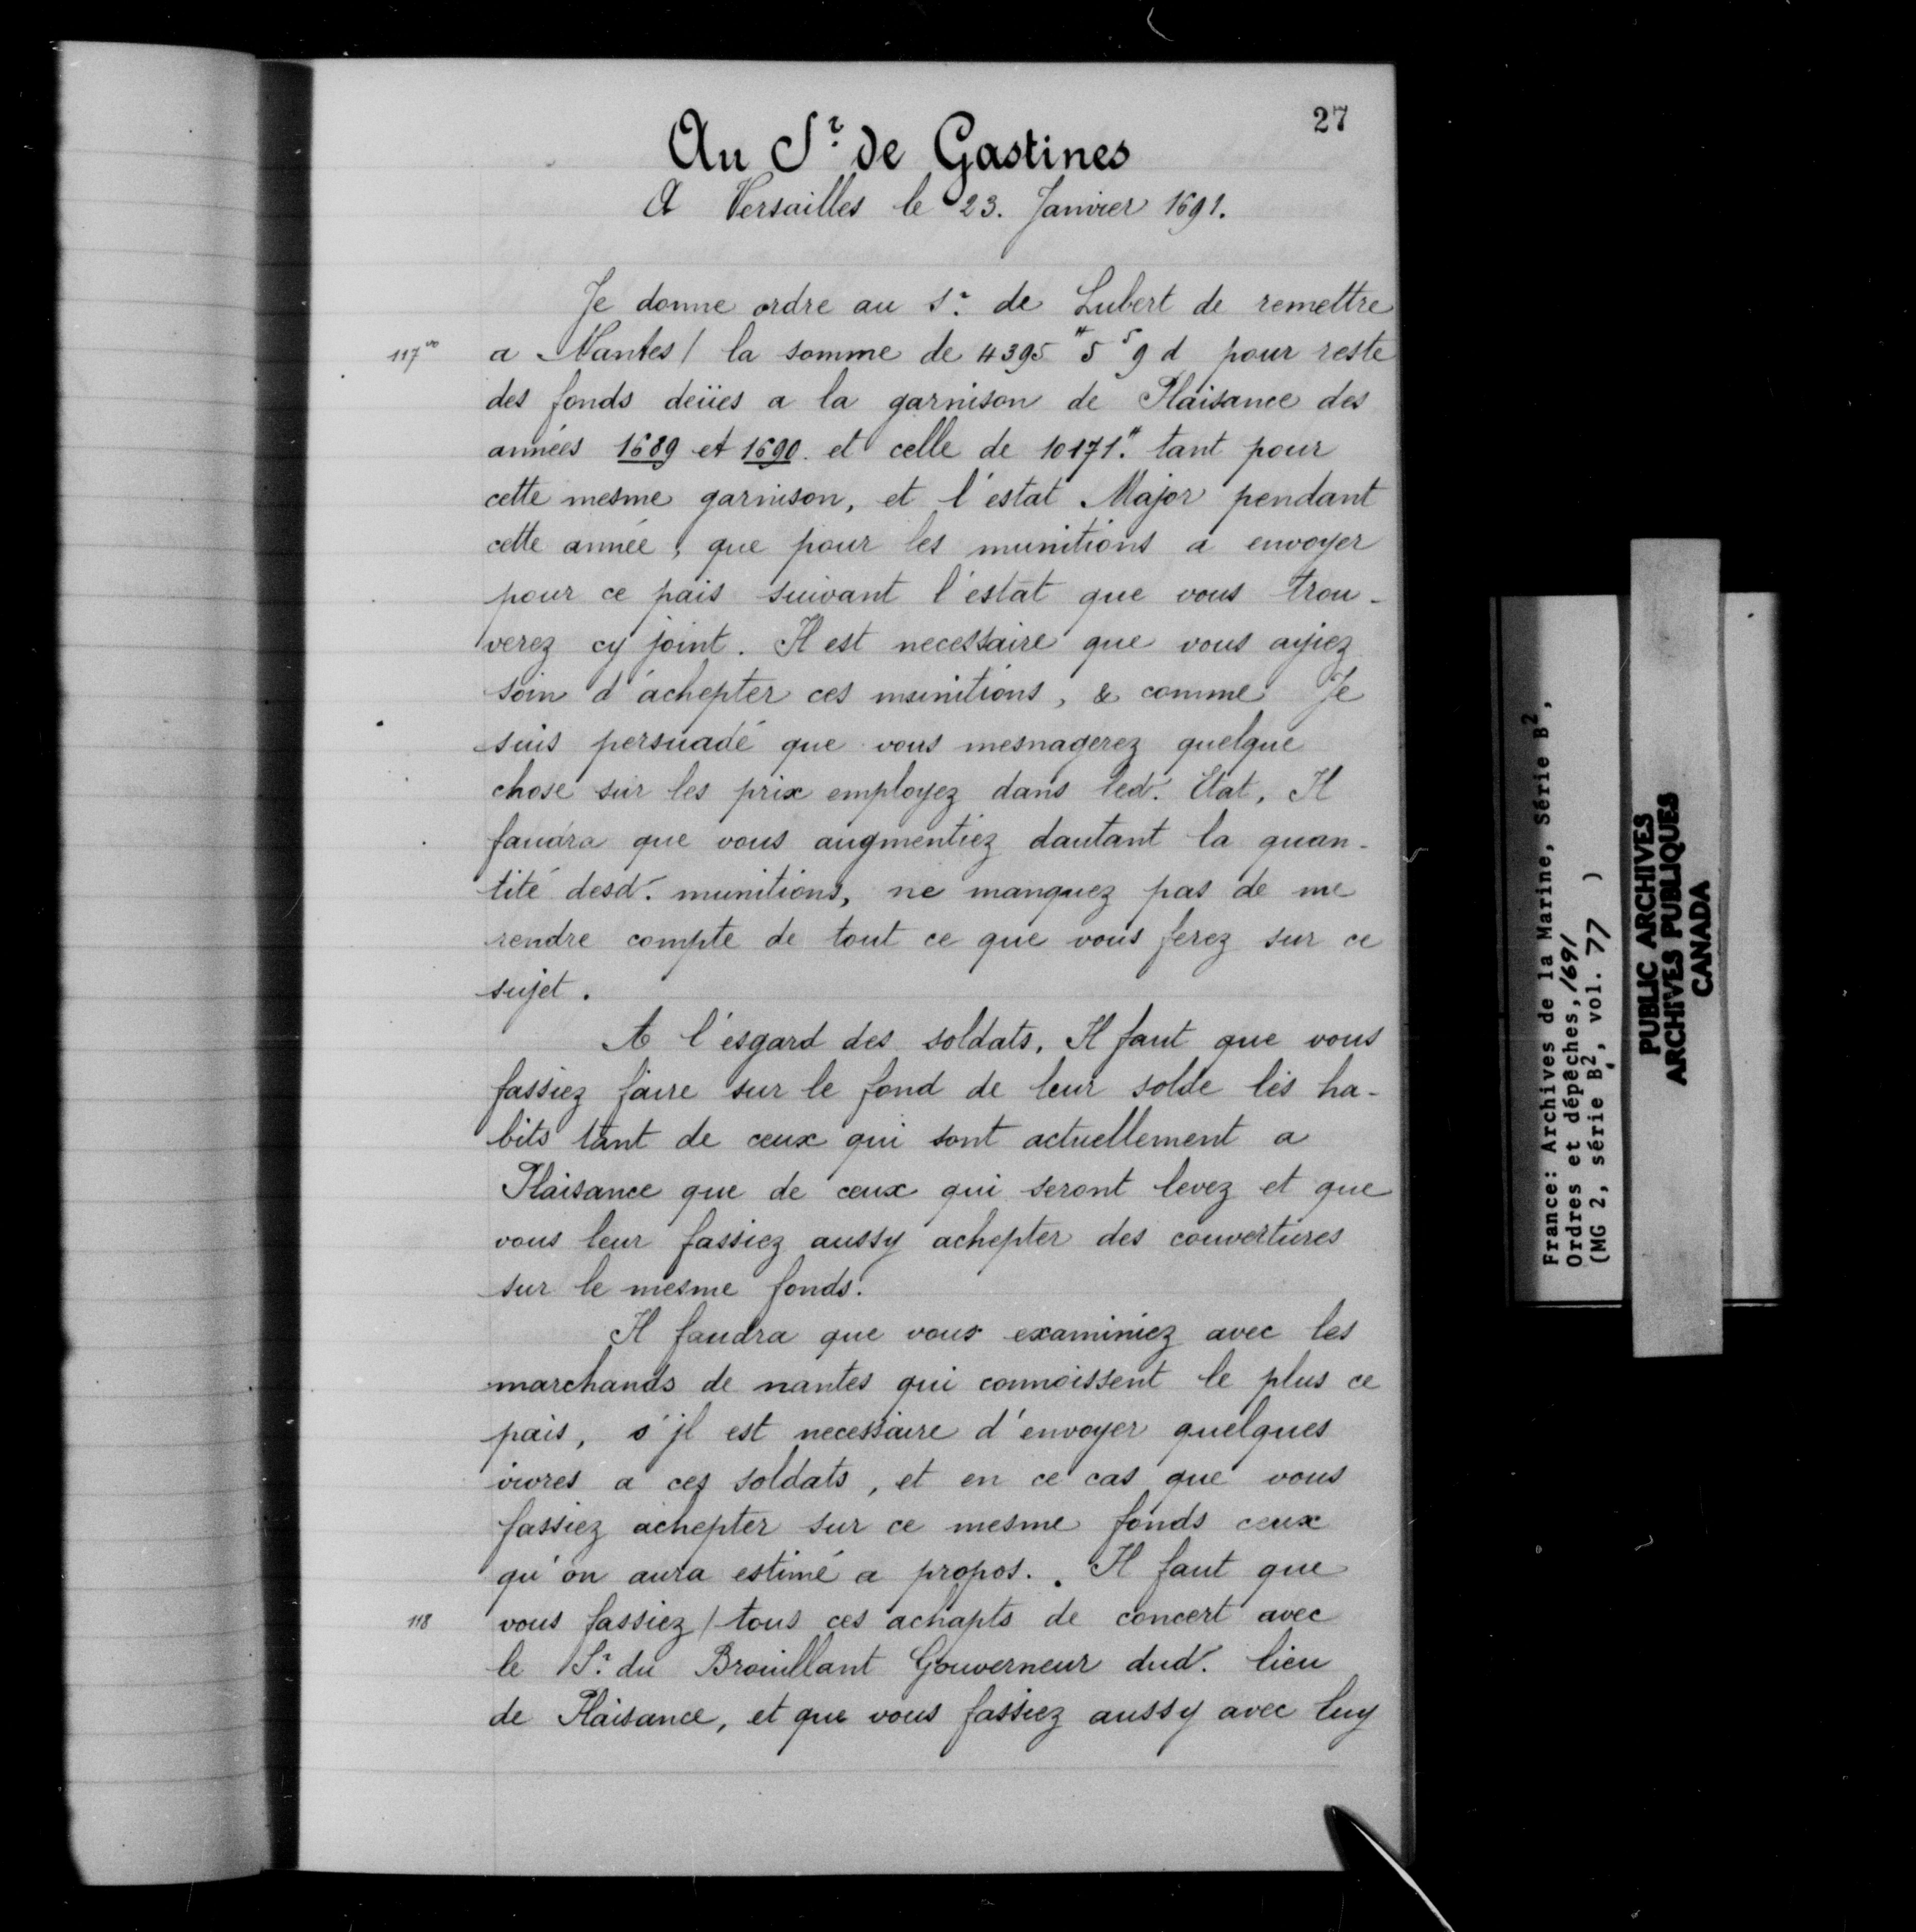 27
Au Sr. de Gastines
A Versailles le 23. Janvier 1691.
Je donne ordre au Sr. de Lubert de remettre
117vo a Nantes / la somme de 4395 # 5 s 9 d pour reste
des fonds deües a la garnison de Plaisance des
années 1689 et 1690. et celle de 10171.# tant pour
cette mesme garnison, et l'estat Major pendant
cette année, que pour les munitions a envoyer
pour ce païs suivant l'estat que vous trou-
verez cy joint. Il est necessaire que vous ayiez
soin d'achepter ces munitions, & comme Je
suis persuadé que vous mesnagerez quelque
chose sur les prix employez dans led. Etat, Il
faudra que vous augmentiez dautant la quan-
tité desd. munitions, ne manquez pas de me
rendre compte de tout ce que vous ferez sur ce
sujet.
A l'esgard des soldats, Il faut que vous
fassiez faire sur le fond de leur solde les ha-
bits tant de ceux qui sont actuellement a
Plaisance que de ceux qui seront levez et que
vous leur fassiez aussy achepter des couvertures
sur le mesme fonds.
Il faudra que vous examiniez avec les
marchands de nantes qui connoissent le plus ce
païs, s'jl est necessaire d'envoyer quelques
vivres a ces soldats, et en ce cas que vous
fassiez achepter sur ce mesme fonds ceux
qu'on aura estimé a propos.. Il faut que
118 vous fassiez / tous ces achapts de concert avec
le Sr. du Brouillant Gouverneur dud. lieu
de Plaisance, et que vous fassiez aussy avec luy
France: Archives de la Marine, Série B2,
Ordres et dépêches, 1691
(MG 2, série B2, vol. 77 )
PUBLIC ARCHIVES
ARCHIVES PUBLIQUES
CANADA